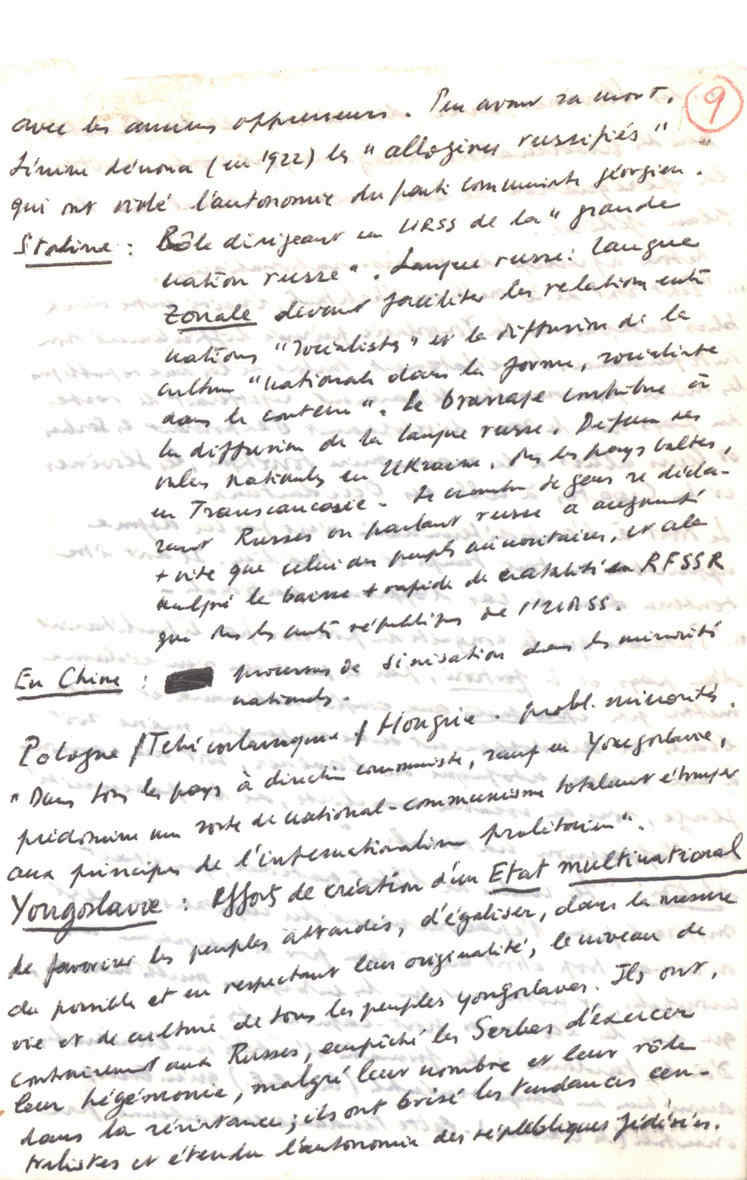 9
avec les anciens oppresseurs. Peu avant sa mort,
Lénine dénonça (en 1922) les "allogènes russifiés"
qui ont violé l'autonomie du parti communiste géorgien.
Staline : Rôle dirigeant en URSS de la "grande
nation russe". Langue russe : langue
zonale devant faciliter les relations entre
nations "socialistes" et la diffusion de la
culture "nationale dans la forme, socialiste
dans le contenu". Le brassage contribue à
la diffusion de la langue russe. Défense des
nationales en Ukraine, ds les pays baltes,
en Transcaucasie. Le nombre de gens se décla-
rant Russes ou parlant russe a augmenté
+ vite que celui des peuples minoritaires, et cela
malgré la baisse + rapide de natalité en RFSSR
que ds les autres républiques de l'URSS.
En Chine : processus de sinisation dans les minorités
nationales.
Pologne / Tchécoslovaquie / Hongrie - probl. minorités.
"Dans tous les pays à direction communiste, sauf en Yougoslavie,
prédomine une sorte de national-communisme totalement étranger
aux principes de l'internationalisme prolétarien".
Yougoslavie : effort de création d'un Etat multinational
de favoriser les peuples attardés, d'égaliser, dans la mesure
du possible et en respectant leur originalité, le niveau de
vie et de culture de tous les peuples yougoslaves. Ils ont,
contrairement aux Russes, empêché les Serbes d'exercer
leur hégémonie, malgré leur nombre et leur rôle
dans la résistance ; ils ont brisé les tendances cen-
tralistes et étendu l'autonomie des républiques fédérées.